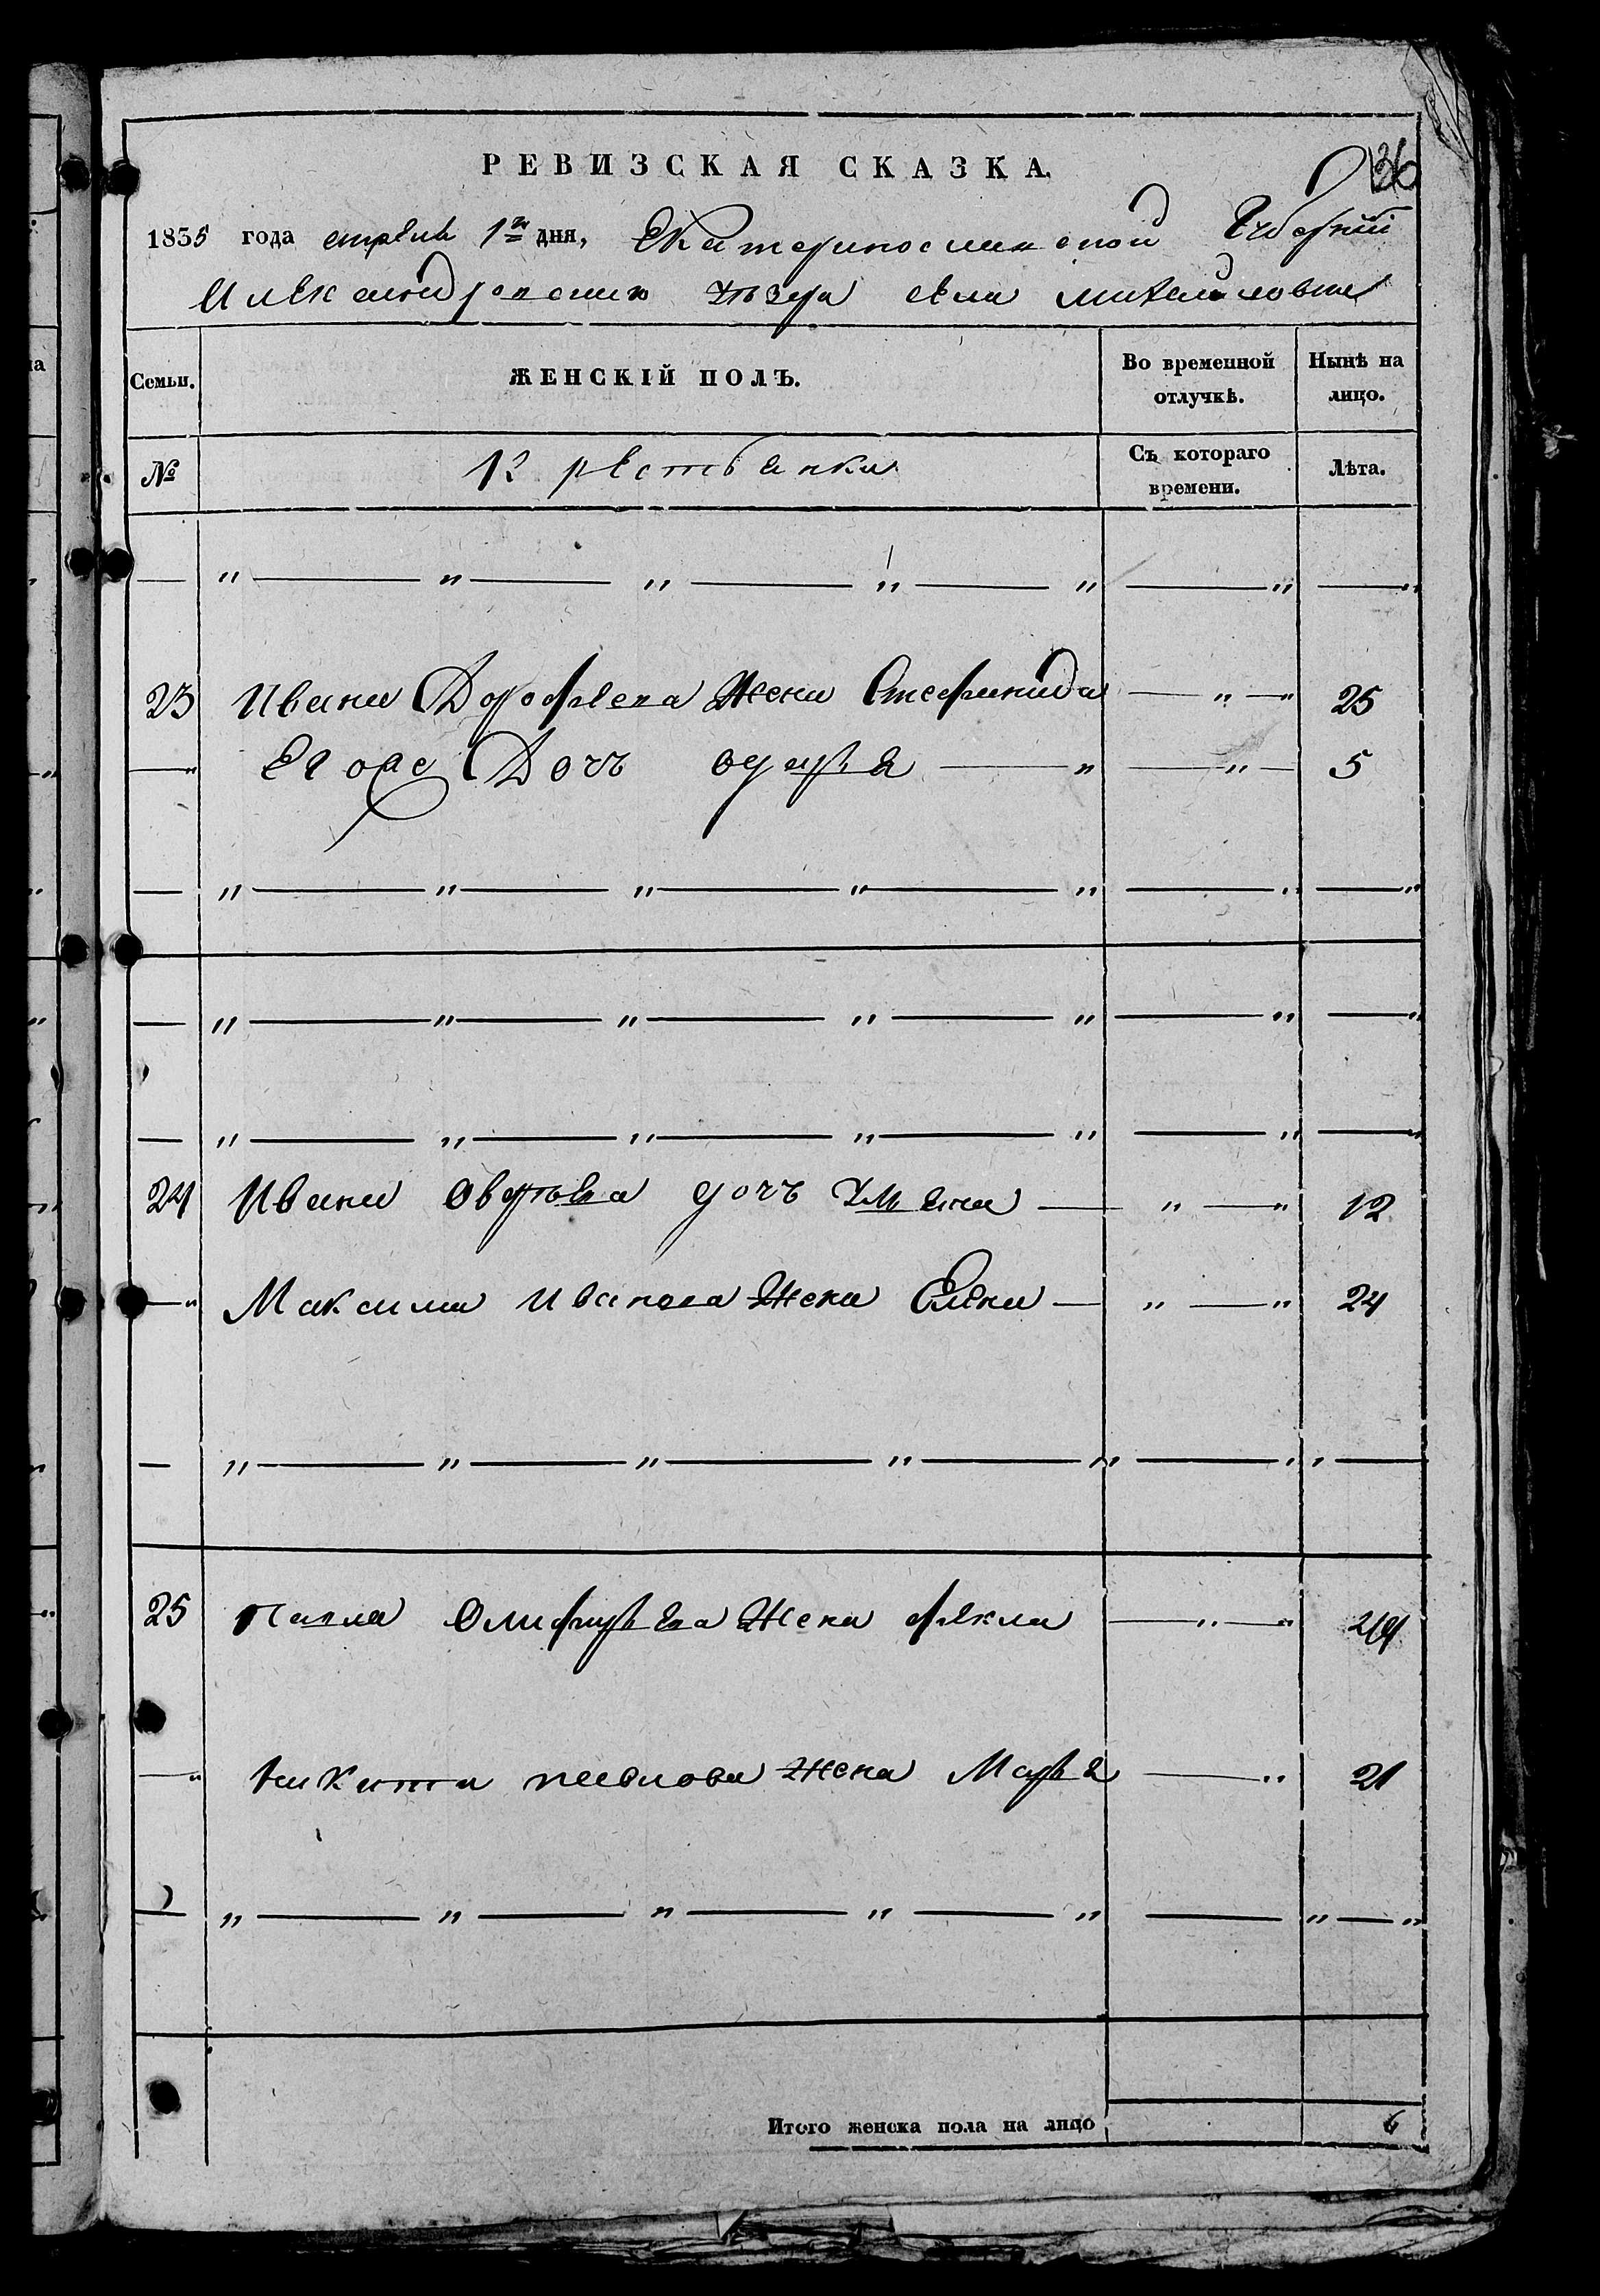 РЕВИЗСКАЯ СКАЗКА.
36
1835 года апреля 1го дня, Екатеринославской Губернии
Александровского уезда села Михайловки
Семьи.
ЖЕНСКІЙ ПОЛЪ.
Во временной отлучкѣ.
Нынѣ на лицо.
№
Крестьянки
Съ котораго времени.
Лѣта.
23 Ивана Дорофеева Жена Стефанида — " — " 25
— " Дочь — " — " — 5
24 Ивана дочь Ульяна — " — " 12
— " Максима Иванова Жена Елена — " — " 24
25 Павла Жена Фекла — " — "
— " Никиты павлова жена Марья — " 21
Итого женска пола на лицо 6